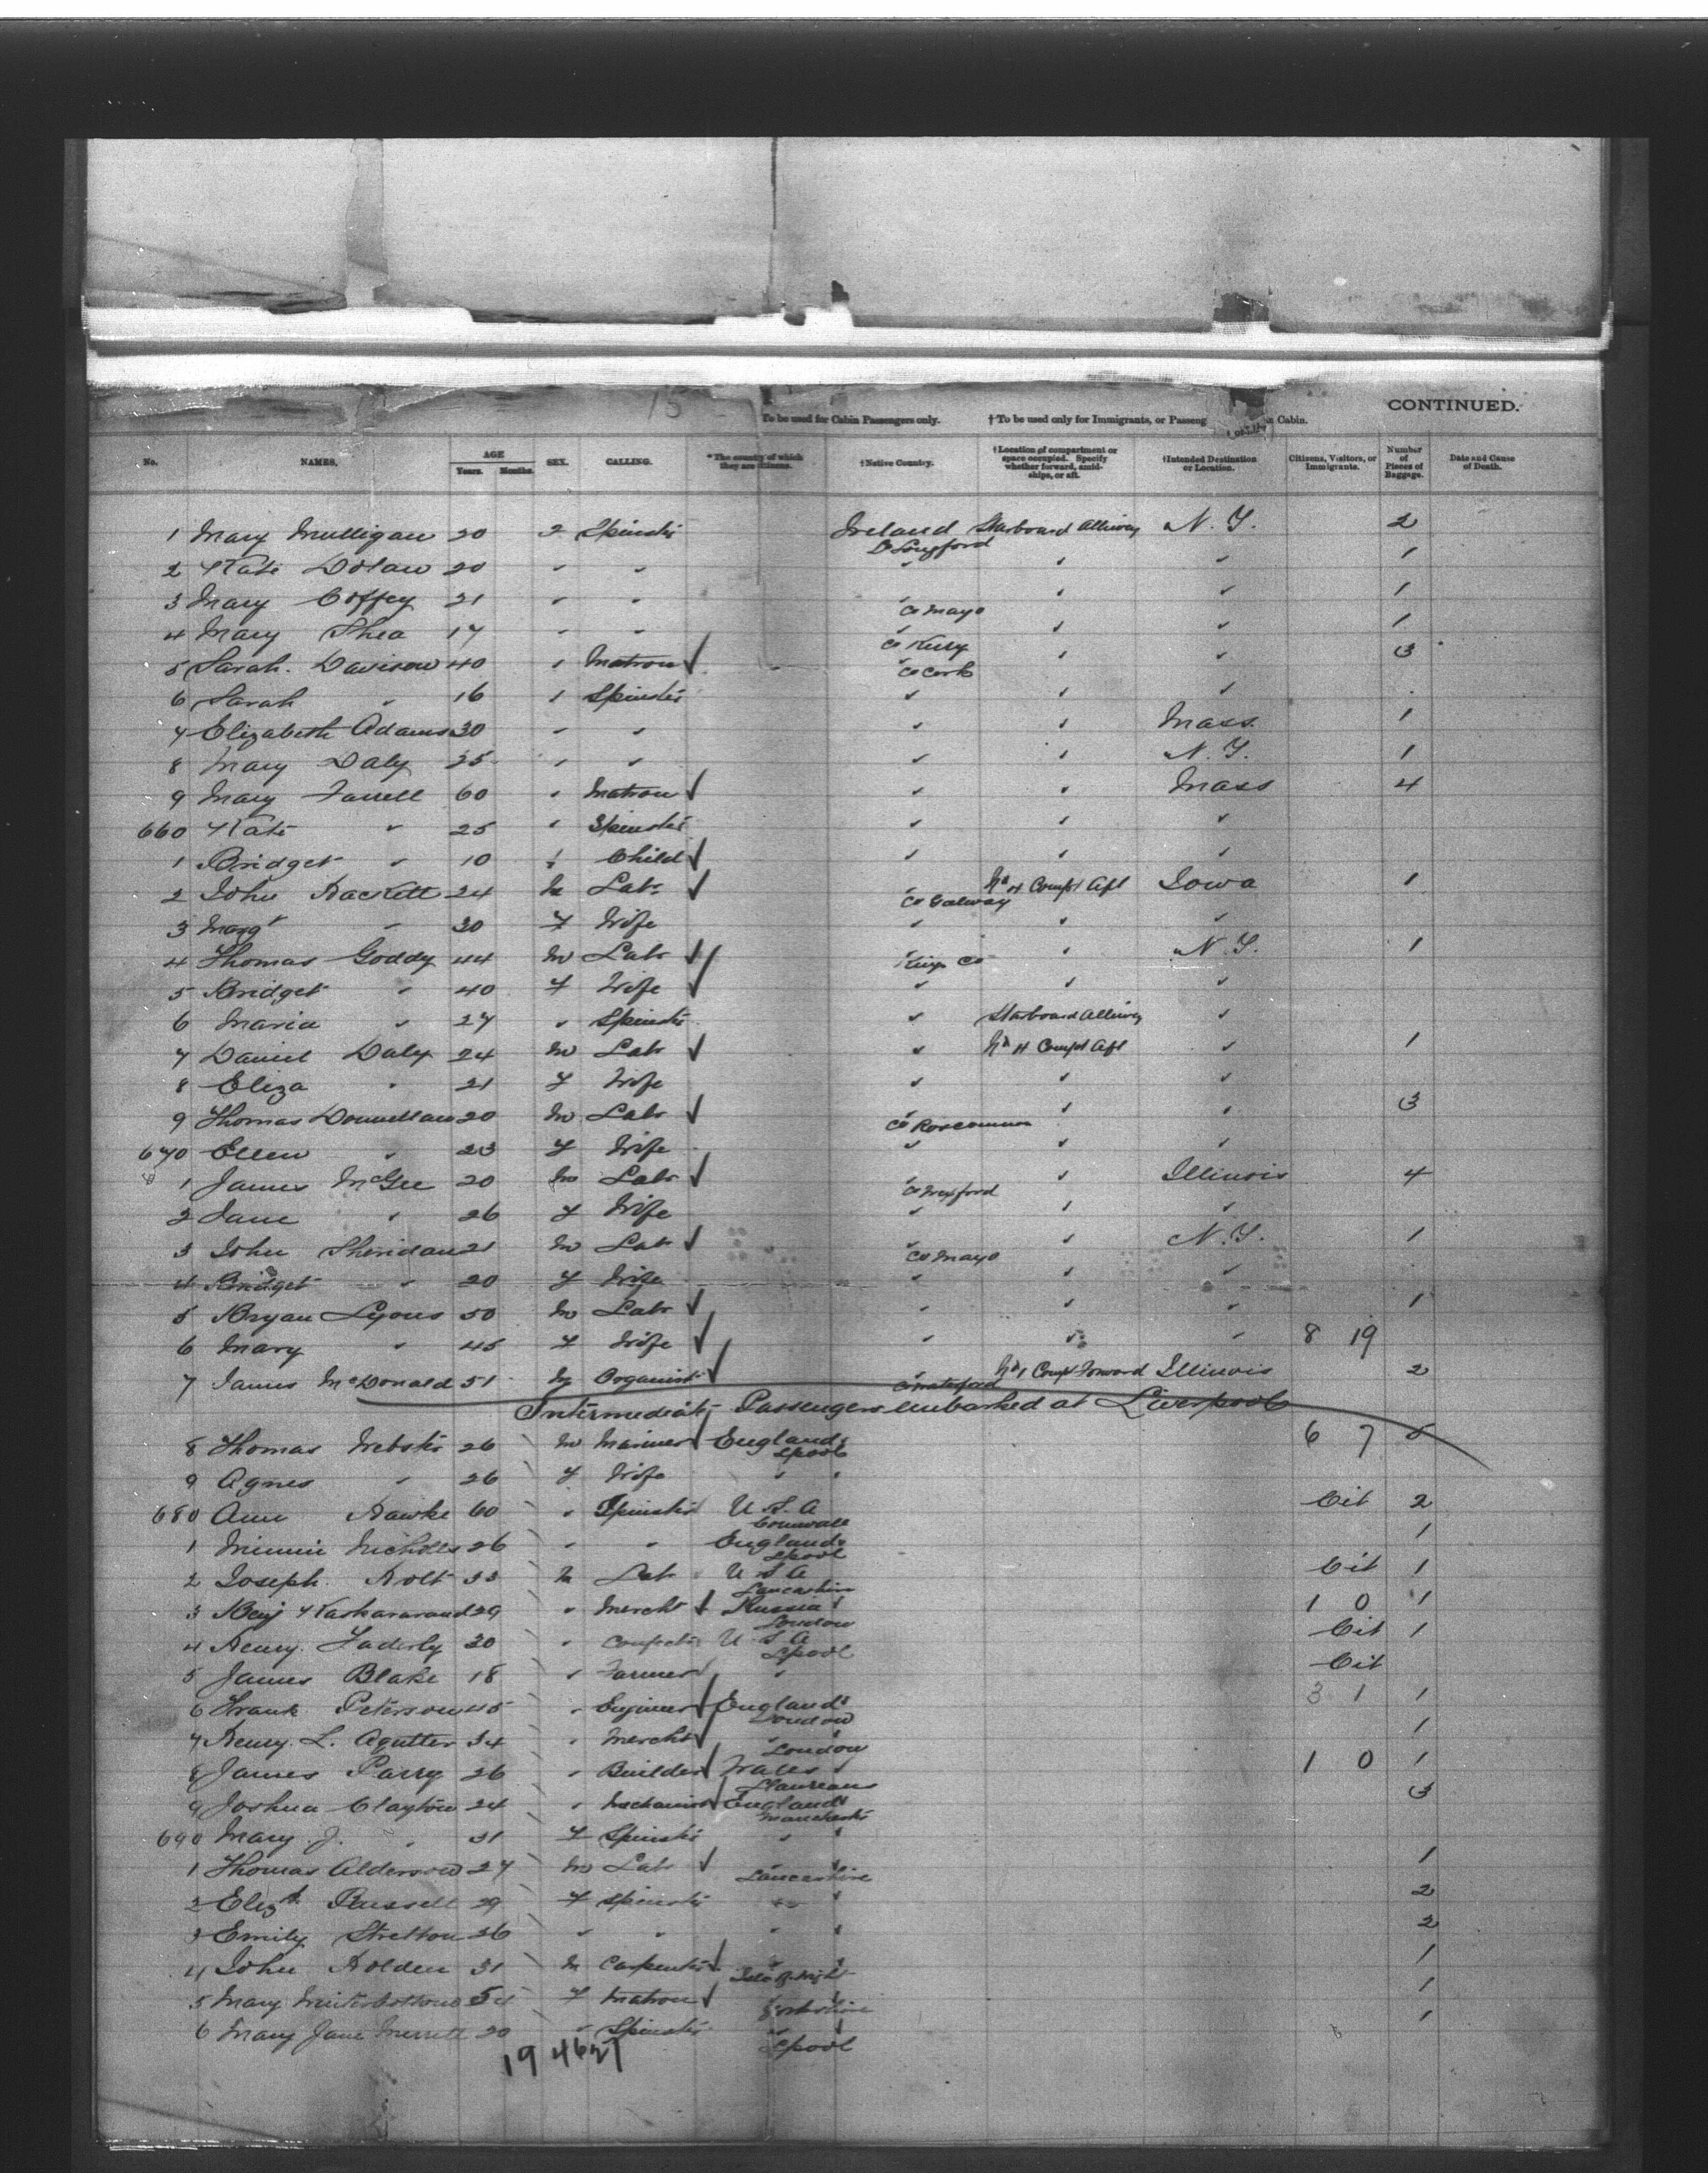 15
CONTINUED.
To be used for Cabin Passengers only. † To be used only for Immigrants, or Passeng Cabin.
No. NAMES. AGE Years. Months. SEX. CALLING. * The country of which they are citizens. † Native Country. † Location of compartment or space occupied. Specify whether forward, amidships, or aft. † Intended Destination or Location. Citizens, Visitors, or Immigrants. Number of Pieces of Baggage. Date and Cause of Death.
1 Mary Mulligan 20 F Spinstr Ireland Co Longford Starboard Alleway N.Y. 2
2 Kate Dolan 20 " " " " " 1
3 Mary Coffey 21 " " " Co Mayo " " 1
4 Mary Shea 17 " " " Co Kerry " " 1
5 Sarah Davison 40 " Matron ✓ " Co Cork " " 3
6 Sarah " 16 " Spinstr " " "
7 Elizabeth Adams 30 " " " " Mass 1
8 Mary Daly 25 " " " " N.Y. 1
9 Mary Farrell 60 " Matron ✓ " " Mass 4
660 Kate " 25 " Spinstr " " "
1 Bridget " 10 " Child ✓ " " "
2 John Hackett 24 m Labr ✓ " Co Galway No 4 Compt Aft Iowa 1
3 Margt " 30 F Wife " " "
4 Thomas Goddy 44 m Labr ✓ Kings Co " N.Y. 1
5 Bridget " 40 F Wife ✓ " " "
6 Maria " 27 " Spinstr " Starboard Alleway "
7 Daniel Daly 24 m Labr ✓ " No 4 Compt Aft " 1
8 Eliza " 21 F Wife " " "
9 Thomas Donnellan 20 m Labr ✓ " Co Roscommon " " 3
670 Ellen " 23 F Wife " " "
1 James McGee 20 m Labr ✓ " Co Wexford " Illinois 4
2 Jane " 26 F Wife " " "
3 John Sheridan 21 m Labr ✓ " Co Mayo " N.Y. 1
4 Bridget " 20 F Wife " " "
5 Bryan Lyons 50 m Labr ✓ " " " 1
6 Mary " 45 F Wife ✓ " " " 8 19
7 James McDonald 51 m Organist ✓ Co Waterford No 1 Compt Forward Illinois 2
Intermediate Passengers embarked at Liverpool
8 Thomas Webster 26 m Mariner ✓ England Lpool 6 7
9 Agnes " 26 F Wife " "
680 Ann Hawke 60 " Spinstr U.S.A Cornwall Cit 2
1 Minnie Nicholls 26 " " England Lpool 1
2 Joseph Holt 33 m Labr U S A Lancashire Cit 1
3 Benj 29 " Mercht ✓ Russia London 1 0 1
4 Henry 30 " Confectr U S A Lpool Cit 1
5 James Blake 18 " Farmer " Cit
6 Frank Peterson 45 " Engineer ✓ England London 3 1 1
7 Henry L. Agutter 34 " Mercht ✓ " London 1
8 James Parry 26 " Builder ✓ Wales 1 0 1
9 Joshua Clayton 24 " Mechanist ✓ England Manchestr 3
690 Mary J. " 31 F Spinstr " "
1 Thomas Alderson 27 m Labr ✓ " Lancashire 1
2 Elizth Russell 29 F Spinstr " " 2
3 Emily Stretton 26 " " " " 2
4 John Holden 31 m Carpenter ✓ " Isle of Wight 1
5 Mary Winterbottom 54 F Matron ✓ " Yorkshire 1
6 Mary Jane Merrett 20 " Spinstr " Lpool 1
19 4627